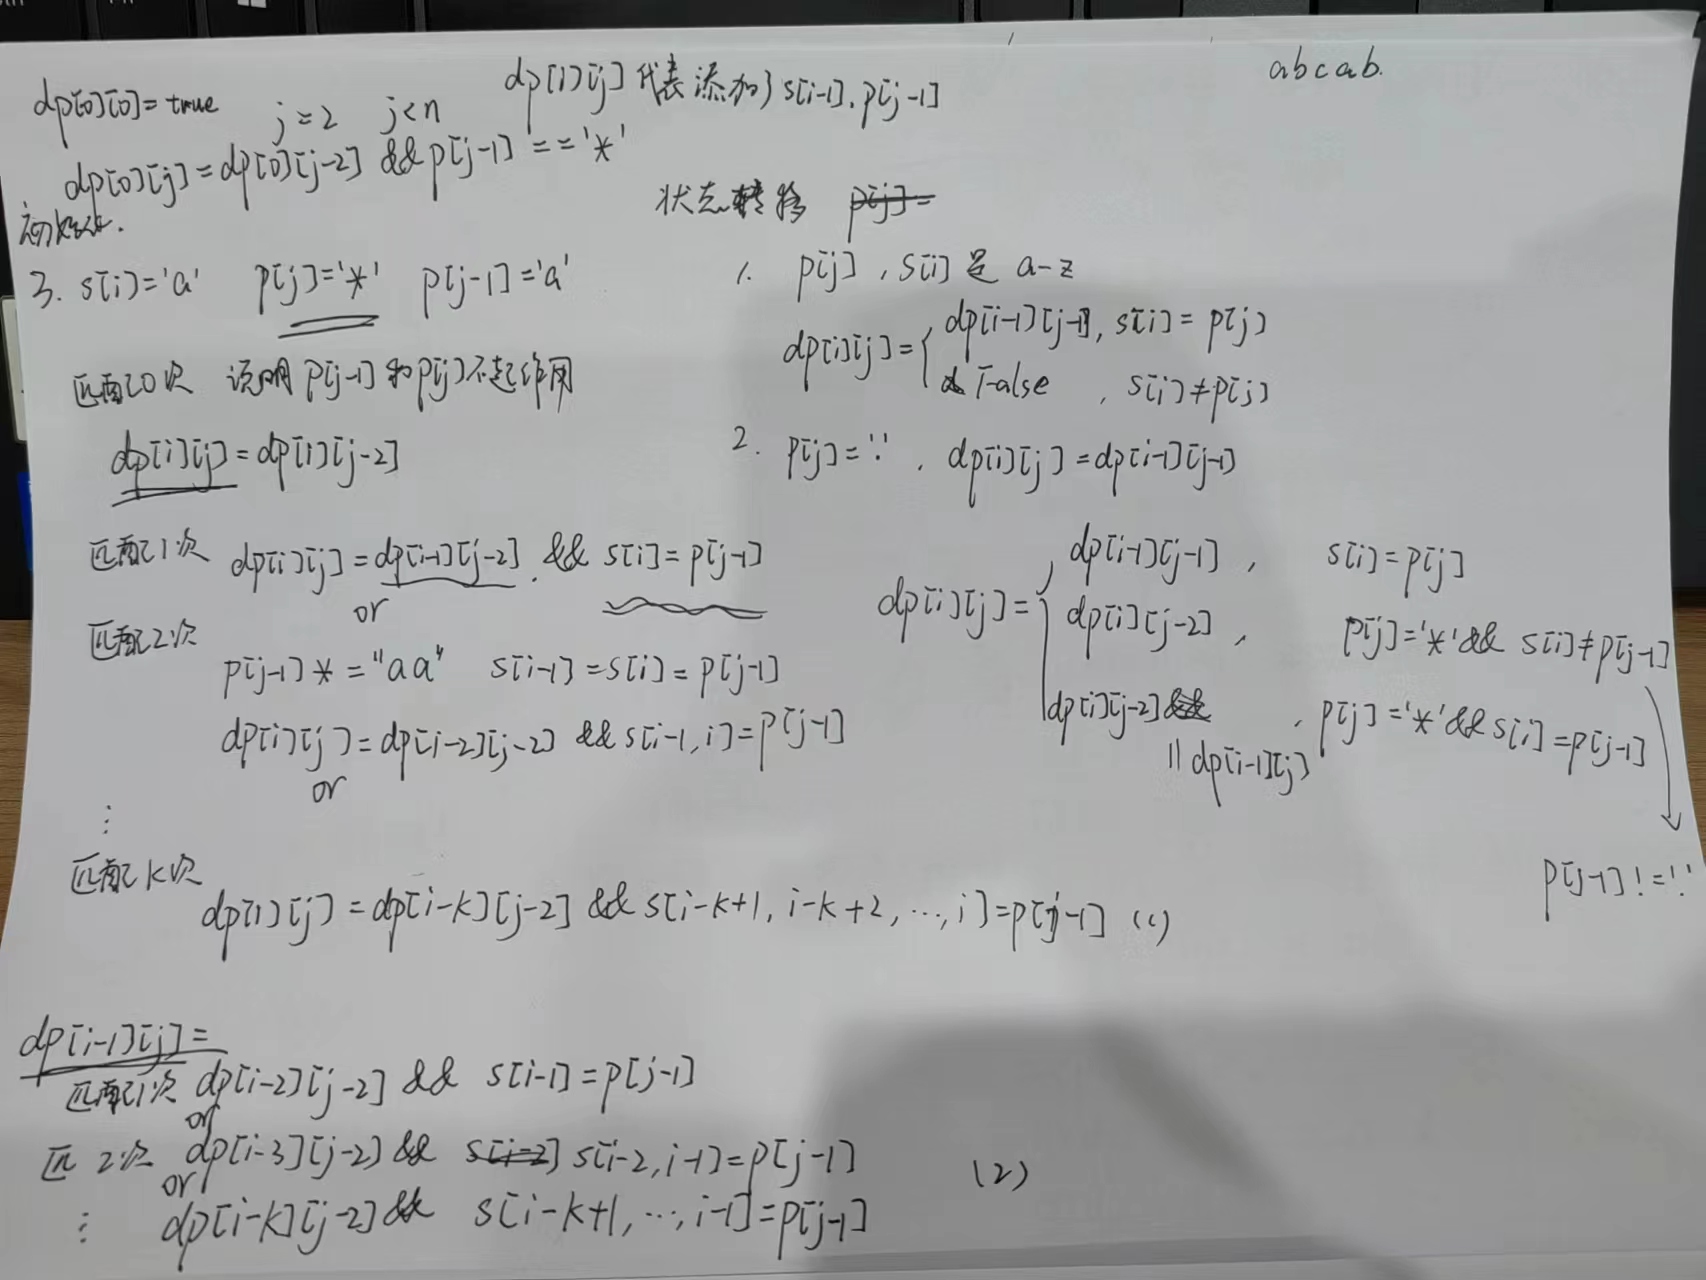 abcab.
dp[i][j]代表添加了s[i-1],p[j-1]
dp[0][0]=true
j=2 j<n
dp[0][j]=dp[0][j-2] && p[j-1]=='*'
初始化.
状态转移 p[j]=
3. s[i]='a' p[j]='*' p[j-1]='a'
匹配0次 说明p[j-1]和p[j]不起作用
dp[i][j]=dp[i][j-2]
匹配1次 dp[i][j]=dp[i-1][j-2] && s[i]=p[j-1]
or
匹配2次
p[j-1]*="aa" s[i-1]=s[i]=p[j-1]
dp[i][j]=dp[i-2][j-2] && s[i-1,i]=p[j-1]
or
⋮
匹配k次
dp[i][j]=dp[i-k][j-2] && s[i-k+1,i-k+2,…,i]=p[j-1] (1)
1. p[j],s[i]是a-z
dp[i][j]={
dp[i-1][j-1], s[i]=p[j]
False , s[i]≠p[j]
2. p[j]='.', dp[i][j]=dp[i-1][j-1]
dp[i][j]={
dp[i-1][j-1], s[i]=p[j]
dp[i][j-2], p[j]='*'&& s[i]≠p[j-1]
dp[i][j-2] && , p[j]='*'&&s[i]=p[j-1]
|| dp[i-1][j]
p[j-1]!='.'
dp[i-1][j]=
匹配1次 dp[i-2][j-2] && s[i-1]=p[j-1]
or
匹2次 dp[i-3][j-2] && s[i-2] s[i-2,i-1]=p[j-1] (2)
or
⋮ dp[i-k][j-2]&& s[i-k+1,…,i-1]=p[j-1]